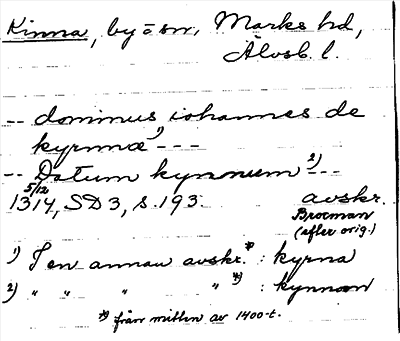 Kinna, by o sn, Marks hd,
Älvsb. l.
-- dominus iohannes de
kyrmæ 1) ---
-- Datum kynnum 2) --
5/12
1314, SD 3, s. 193. avskr.
Brocman
(efter orig.)
1) I en annan avskr. *) : kyrna
2) " " " " *) : kynnom
*) från mitten av 1400-t.